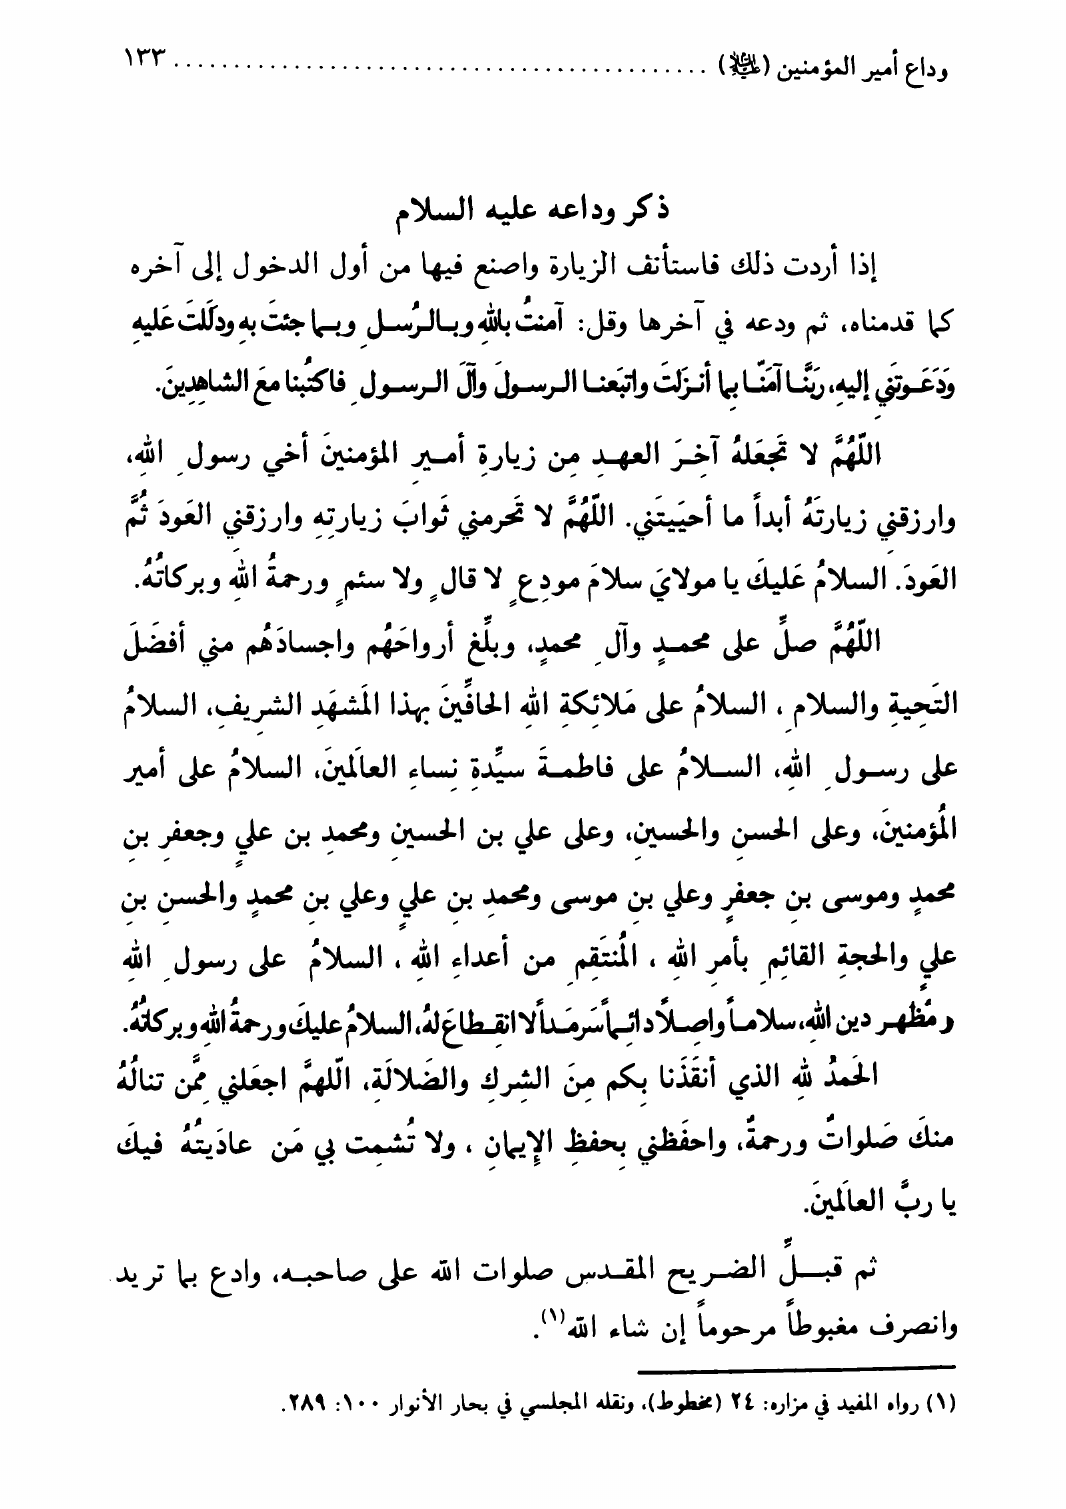 وداع أمير المؤمنين (عليه السلام) ............................................. ١٣٣
ذكر وداعه عليه السلام
إذا أردت ذلك فاستأنف الزيارة واصنع فيها من أول الدخول إلى آخره
كما قدمناه، ثم ودعه في آخرها وقل: آمنتُ باللهِ وبالرُسلِ وبما جئتَ بهِ ودَلَلتَ عَليهِ
وَدَعَوتَني إليهِ، رَبَّنا آمَنّا بِما أنزلتَ واتبَعنا الرسولَ وآلَ الرسولِ فاكتُبنا معَ الشاهِدِينَ.
اللّهُمَّ لا تَجعَلهُ آخِرَ العهدِ مِن زيارةِ أميرِ المؤمنينَ أخي رسولِ اللهِ،
وارزقني زيارتَهُ أبداً ما أحيَيتَني. اللّهُمَّ لا تَحرمني ثَوابَ زيارتِهِ وارزقني العَودَ ثُمَّ
العَودَ. السلامُ عَليكَ يا مولايَ سلامَ مودِعٍ لا قالٍ ولا سئمٍ ورحمةُ اللهِ وبركاتُهُ.
اللّهُمَّ صلِّ على محمدٍ وآلِ محمدٍ، وبلِّغ أرواحَهُم واجسادَهُم مني أفضَلَ
التَحِيةِ والسلامِ، السلامُ على مَلائِكةِ اللهِ الحافِّينَ بهذا المَشهَدِ الشريفِ، السلامُ
على رسولِ اللهِ، السلامُ على فاطمةَ سيِّدةِ نِساءِ العالَمينَ، السلامُ على أمير
المُؤمنينَ، وعلى الحسنِ والحسينِ، وعلى علي بن الحسينِ ومحمدِ بن عليٍ وجعفرِ بنِ
محمدٍ وموسى بنِ جعفرٍ وعلي بنِ موسى ومحمدِ بنِ عليٍ وعلي بنِ محمدٍ والحسنِ بنِ
عليٍ والحجةِ القائمِ بأمرِ اللهِ، المُنتَقِمِ من أعداءِ اللهِ، السلامُ على رسولِ اللهِ
ومُظهرِ دين اللهِ، سلاماً واصِلاً دائماً سَرمَداً لا انقِطاعَ لهُ، السلامُ عليكَ ورحمةُ اللهِ وبركاتُهُ.
الحَمدُ للهِ الذي أنقَذَنا بِكم مِنَ الشِركِ والضَلالَةِ، اللّهمَّ اجعَلني مِمَّن تنالُهُ
منكَ صَلواتٌ ورحمةٌ، واحفَظني بِحفظِ الإيمانِ، ولا تُشمِت بي مَن عادَيتُهُ فيكَ
يا ربَّ العالَمينَ.
ثم قبلِّ الضريح المقدس صلوات الله على صاحبه، وادع بما تريد
وانصرف مغبوطاً مرحوماً إن شاء الله(١).
(١) رواه المفيد في مزاره: ٢٤ (مخطوط)، ونقله المجلسي في بحار الأنوار ١٠٠: ٢٨٩.